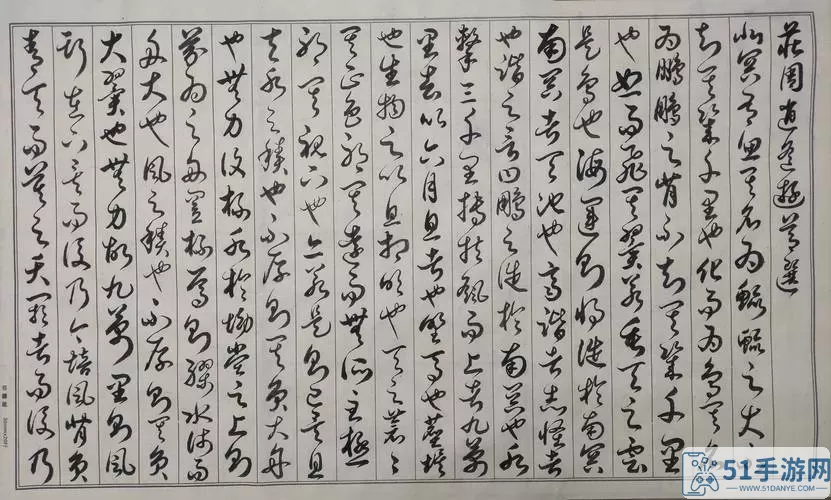 莊周逍遙遊節選
北冥有魚其名為鯤鯤之大不
知其幾千里也化而為鳥其名
為鵬鵬之背不知其幾千里
也怒而飛其翼若垂天之雲
是鳥也海運則將徙於南冥
南冥者天池也齊諧者志怪者
也諧之言曰鵬之徙於南冥也水
擊三千里摶扶搖而上者九萬
里去以六月息者也野馬也塵埃
也生物之以息相吹也天之蒼蒼
其正色邪其遠而無所至極
邪其視下也亦若是則已矣且
夫水之積也不厚則其負大舟
也無力覆杯水於坳堂之上則
芥為之舟置杯焉則膠水淺而
舟大也風之積也不厚則其負
大翼也無力故九萬里則風
斯在下矣而後乃今培風背負
青天而莫之夭閼者而後乃
51手游网
WWW.51DANYE.COM